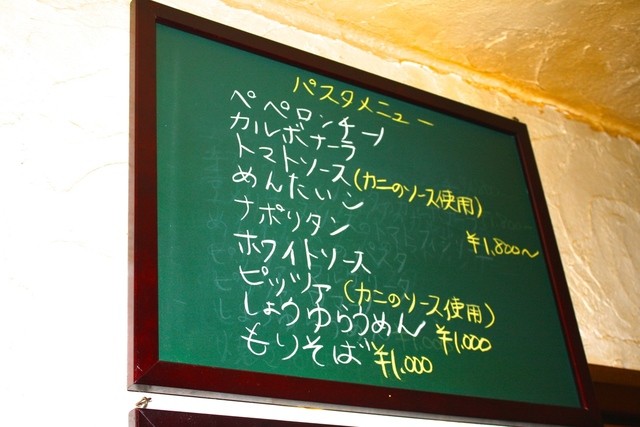 パスタメニュー
ペペロンチーノ
カルボナーラ
トマトソース(カニのソース使用)
めんたいこ
ナポリタン ¥1,800〜
ホワイトソース
ピッツァ(カニのソース使用)
しょうゆらうめん ¥1,000
もりそば ¥1,000